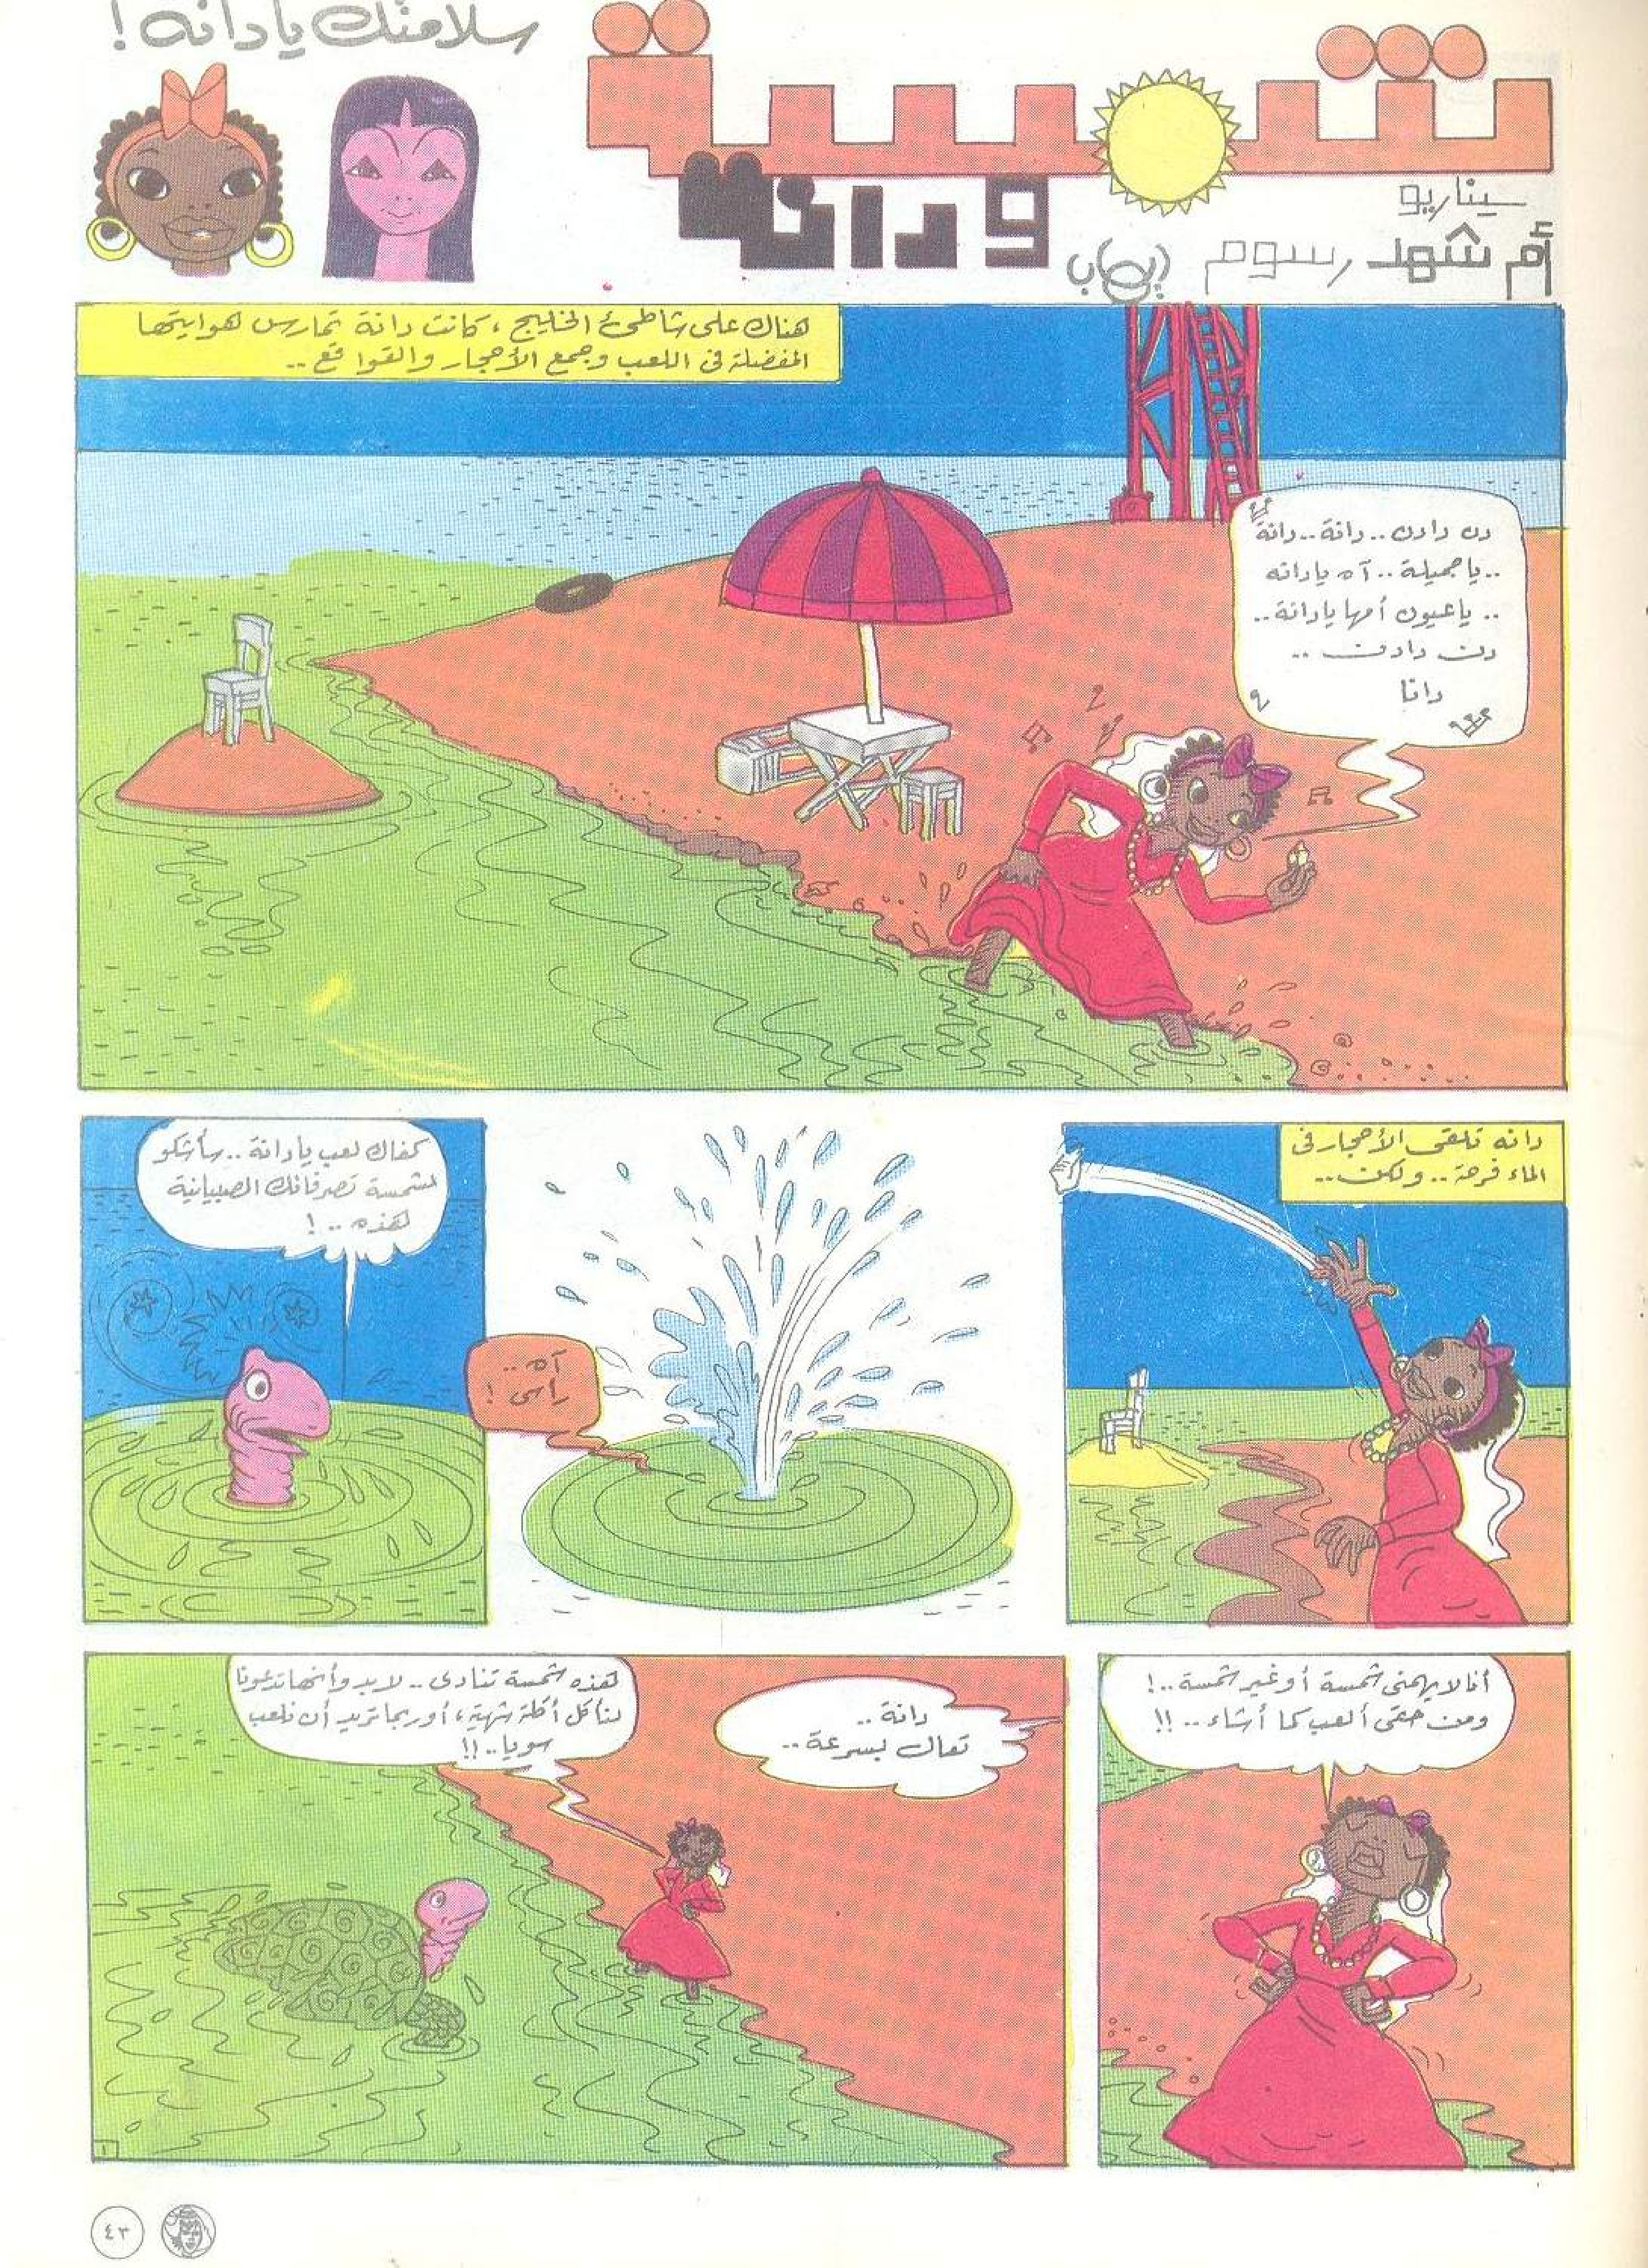 سلامتك يا دانه !
شمسية
ودانة
سيناريو
أم شهد رسوم إيهاب
هناك على شاطئ الخليج ، كانت دانة تمارس هوايتها
المفضلة فى اللعب وجمع الأحجار والقواقع ..
دن دادن .. دانة .. دانة
.. يا جميلة .. آه يادانه
.. ياعيون أمها يادانة ..
دن دادن ..
دانا
دانه تلقى الأحجار فى
الماء فرحة .. ولكن ..
آه ..
رأسى !
كفاك لعب يا دانة .. سأشكو
لشمسة تصرفاتك الصبيانية
هذه .. !
أنا لا يهمنى شمسة أو غير شمسة .. !
ومن حقى ألعب كما أشاء .. !!
دانة ..
تعالى بسرعة ..
هذه شمسة تنادى .. لابد وأنها تدعونا
لنأكل أكلة شهية ، أو ربما تريد أن نلعب
سويا .. !!
١
٤٣